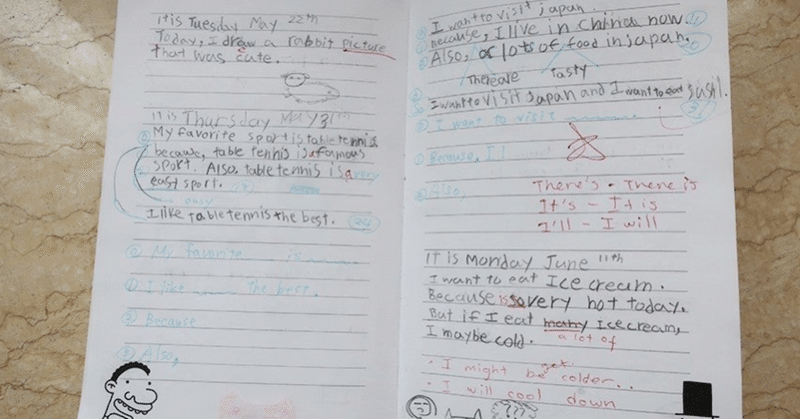 It is Tuesday May 22th
Today, I drew a rabbit picture
that was cute.
It is Thursday May 31th
My favorite sport is table tennis
because, table tennis is famous
sport. Also, table tennis is a very
east sport.
easy
I like table tennis the best.
My favorite is
I like the best.
Because
Also,
I want to visit japan.
because, I live in China now.
Also, or lots of food in japan.
There are tasty
I want to visit Japan and I want to eat sushi.
I want to visit
Because, I
Also,
There's - There is
It's - It is
I'll - I will
It is Monday June 11th
I want to eat Ice cream.
Because is so very hot today.
But if I eat many Ice cream,
a lot of
I maybe cold.
get
· I might be colder..
· I will cool down